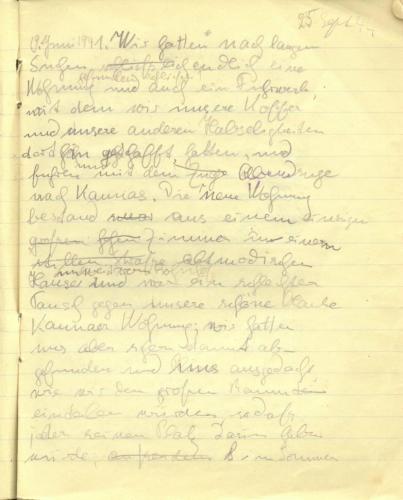 25 Sept
19. Juni 1941. Wir hatten nach langem
Suchen endlich eine
Wohnung und auch ein Fuhrwerk,
mit dem wir unsere Koffer
und unsere anderen Habseligkeiten
dorthin geschafft hatten, und
fuhren mit dem Abendzuge
nach Kaunas. Die neue Wohnung
bestand aus einem einzigen
grossen Zimmer in einem
altmodischen
Hause und war ein schlechter
Tausch gegen unsere schöne
Kaunaer Wohnung; wir hatten
uns aber schon damit ab-
gefunden und uns ausgedacht
wie wir den grossen Raum
einteilen würden, sodass
jeder seinen Platz darin haben
würde. Im Sommer